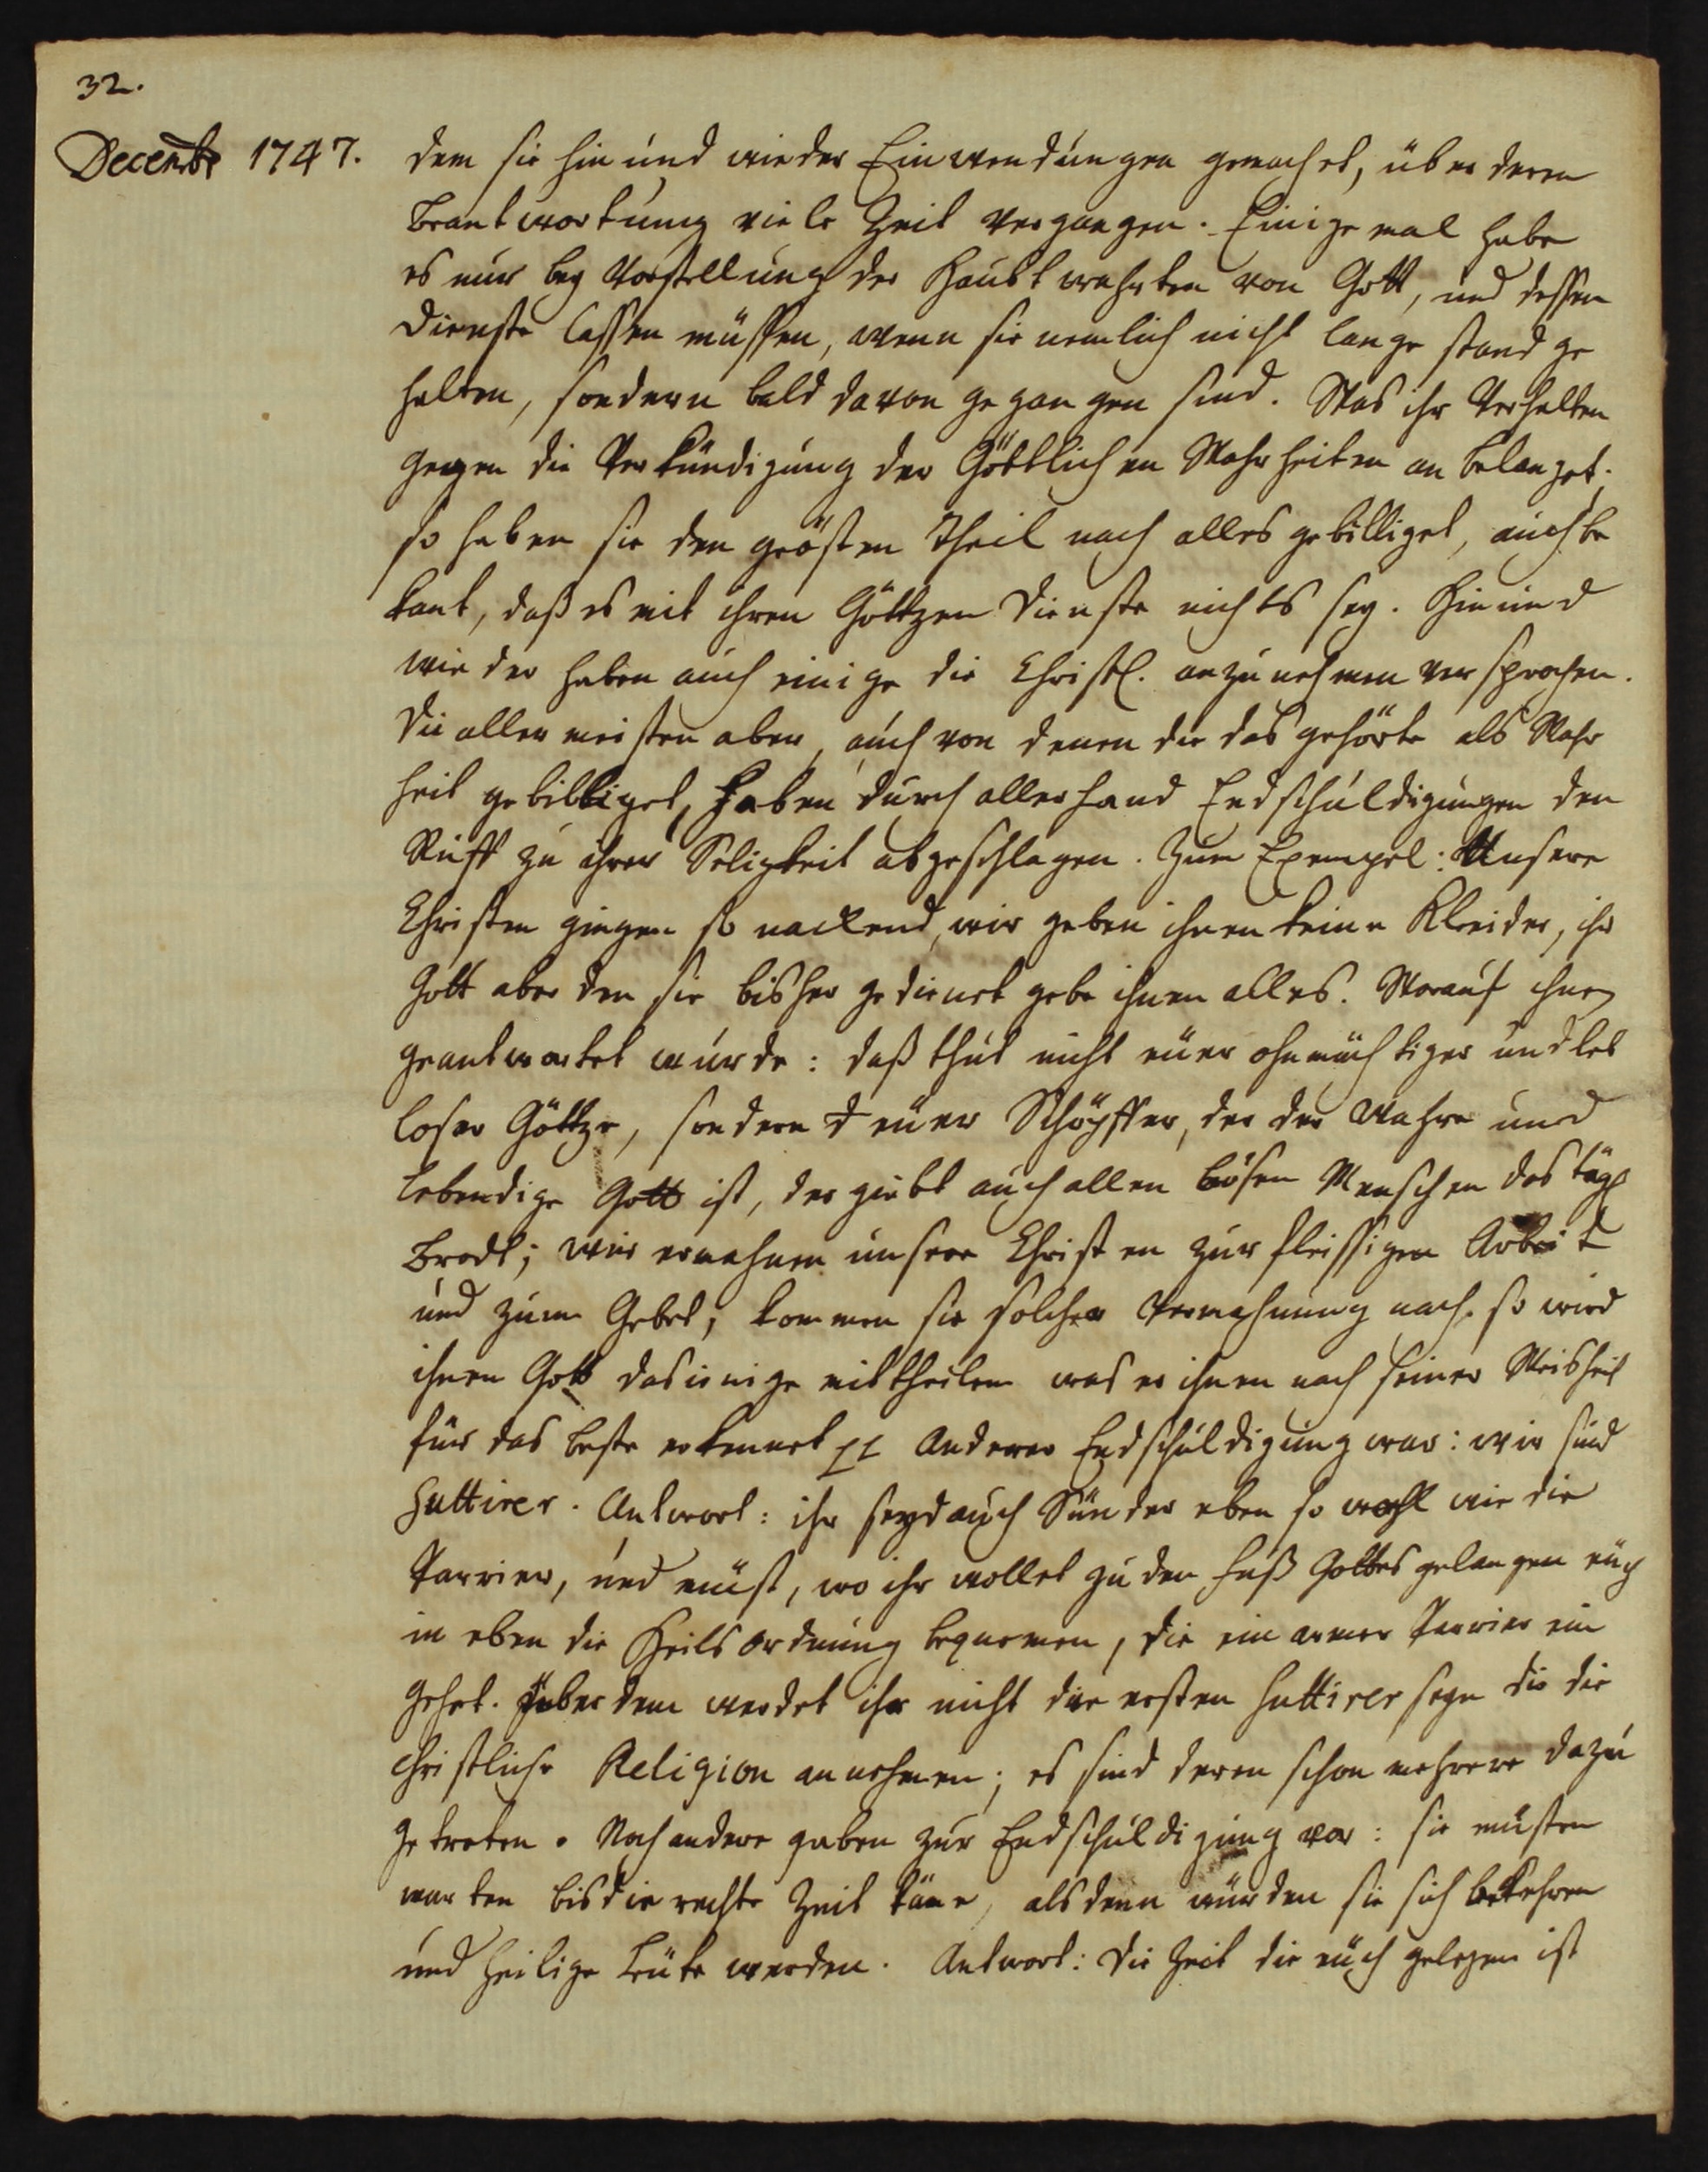 32.
Decembr 1747.
dem sie hin und wieder Einwendungen gemachet, über deren
Beantwortung viele Zeit vergangen. Einige mal habe
es nur bey Vorstellung der Haubtwahrten von Gott, und dessen
Dienste lassen müssen, wenn sie nemlich nicht lange stand ge
halten, sondern bald davon gegangen sind. Was ihr Verhalten
gegen die Verkündigung der Göttlichen Wahrheiten anbelanget:
so haben sie den grösten Theil nach alles gebilliget, auch be
kant, daß es mit ihren Göttzen Dienste nichts sey. Hin und
wieder haben auch einige die Christl. anzunehmen versprochen.
Die aller meisten aber, auch von denen die das gehörte als Wahr
heit gebilliget, haben durch allerhand Endschuldigungen den
Ruff zu ihrer Seligkeit abgeschlagen. Zum Exempel: Unsere
Christen gingen so nackend, wir geben ihnen keine Kleider, ihr
Gott aber den sie bisher gedienet gebe ihnen alles. Worauf ihnen
geantwortet wurde: daß thut nicht euer ohnmächtiger und leb
loser Göttze, sondern euer Schöpffer, der der wahre und
lebendige Gott ist, der giebt auch allen bösen Menschen das tägl
Brodt; wir ermahnen unsere Christen zur fleissigen Arbeit
und zum Gebet; kommen sie solcher Vermahnung nach, so wird
ihnen Gott dasienige mittheilen was er ihnen nach seiner Weisheit
für das beste erkennet pp Anderer Endschuldigung war: wir sind
Suttirer. Antwort: ihr seyd auch Sünder eben so wohl wie die
Parrier, und müst, wo ihr wollet zu den Fuß Gottes gelangen euch
in eben die Heilsordnung bequemen, die ein armer Parrier ein
gehet. Über dem werdet ihr nicht die ersten Suttirer seyn die die
christliche Religion annehmen; es sind deren schon mehrere dazu
getreten. Noch andere gaben zur Endschuldigung vor: sie müsten
warten bis die rechte Zeit käme, alsdenn würden sie sich bekehren
und heilige Leute werden. Antwort: Die Zeit die euch gelegen ist